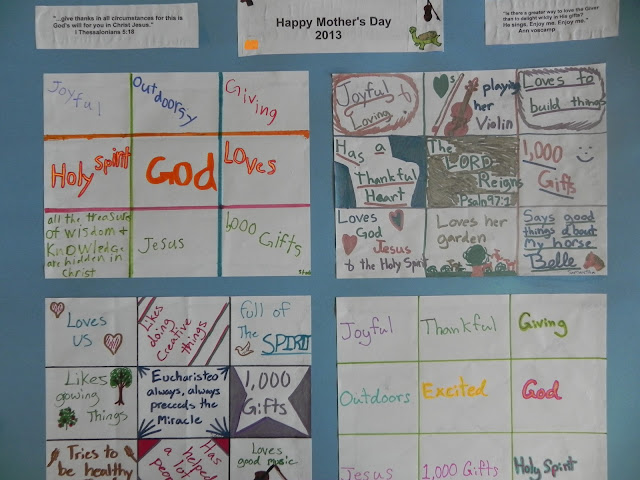 "...give thanks in all circumstances for this is
God's will for you in Christ Jesus."
I Thessalonians 5:18
Happy Mother's Day
2013
"Is there a greater way to love the Giver
than to delight wildly in His gifts?"
He sings. Enjoy me. Enjoy me."
Ann voscamp
Joyful
Outdoorsy
Giving
Holy Spirit
God
Loves
all the treasures
of wisdom +
Knowledge
are hidden in
Christ
Jesus
1,000 Gifts
Joyful +
Loving
♥s playing
her
Violin
Loves to
build things
Has a
Thankful
Heart
The
LORD
Reigns
Psalm 97:1
1,000
Gifts
Loves
God
Jesus
& the Holy Spirit
Loves her
garden
Says good
things about
My horse
Belle
Loves
US
Likes
doing
Creative
things
full of
The SPIRIT
Likes
growing
Things
Eucharisteo
always, always
preceeds the
Miracle
1,000
Gifts
Tries to
be healthy
Has
helped
a lot
Loves
good music
Joyful
Thankful
Giving
Outdoors
Excited
God
Jesus
1,000 Gifts
Holy Spirit